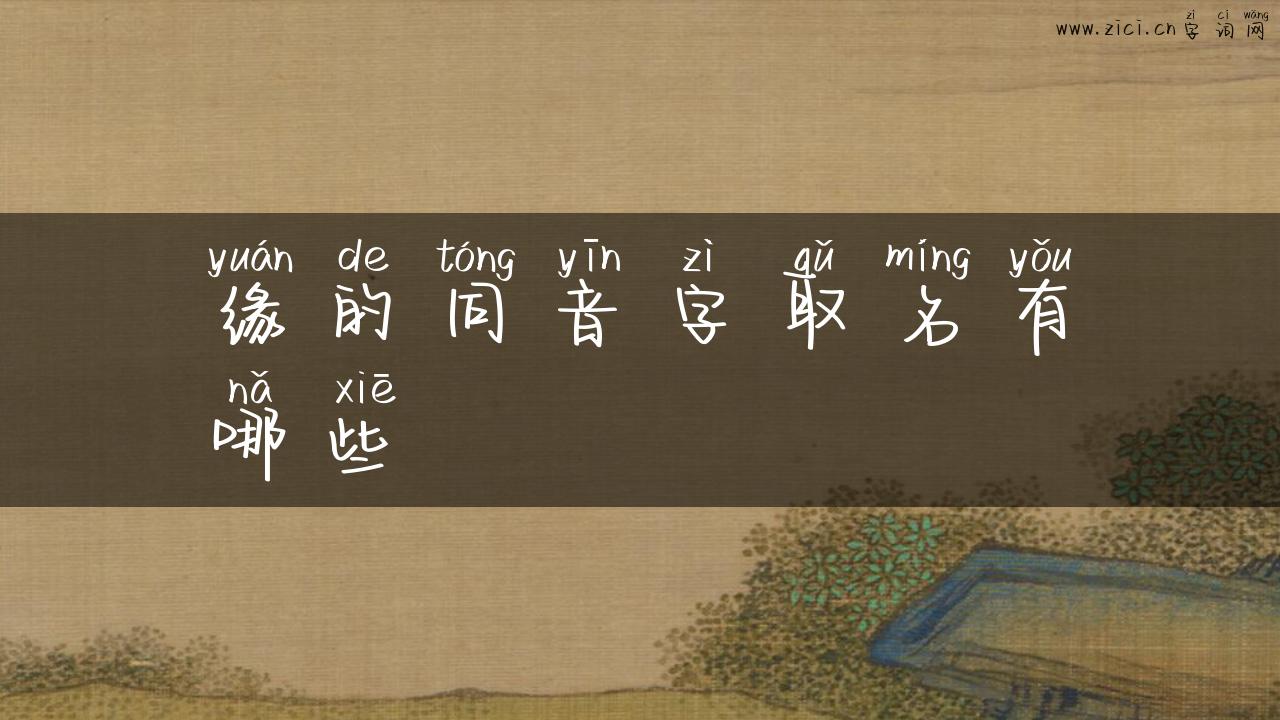 zì cí wǎng
www.zici.cn 字词网
yuán de tóng yīn zì qǔ míng yǒu
缘的同音字取名有
nǎ xiē
哪些